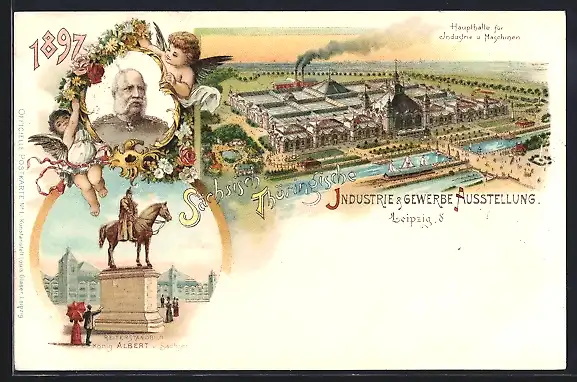 1897
Haupthalle für
Industrie u Maschinen
Sächsisch
Thüringische
INDUSTRIE & GEWERBE AUSSTELLUNG.
Leipzig, d
REITERSTANDBILD
König ALBERT v. Sachsen
OFFICIELLE POSTKARTE No 1. Kunstanstalt Leipzig